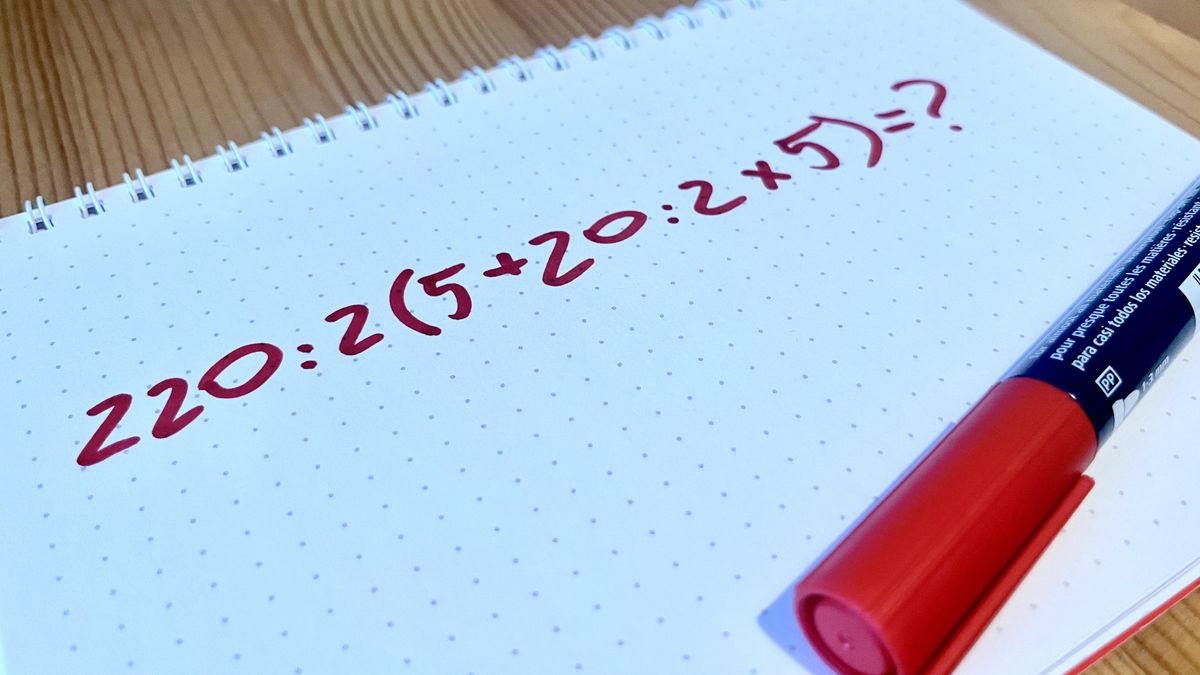 220:2(5+20:2×5)=?
pour presque toutes les matières · résistant
para casi todos los materiales · resis
PP
1-3 mm